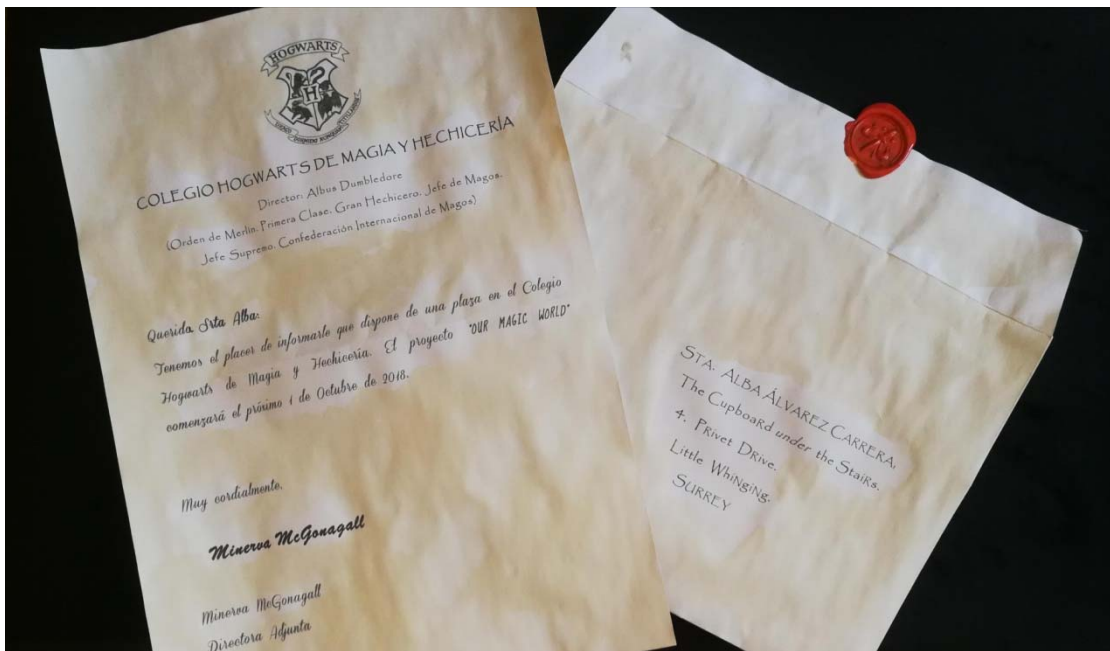 HOGWARTS
H
COLEGIO HOGWARTS DE MAGIA Y HECHICERÍA
Director: Albus Dumbledore
(Orden de Merlín, Primera Clase, Gran Hechicero, Jefe de Magos,
Jefe Supremo, Confederación Internacional de Magos)
Querida Srta Alba:
Tenemos el placer de informarle que dispone de una plaza en el Colegio
Hogwarts de Magia y Hechicería. El proyecto "OUR MAGIC WORLD"
comenzará el próximo 1 de Octubre de 2018.
Muy cordialmente,
Minerva McGonagall
Minerva McGonagall
Directora Adjunta
STA. ALBA ÁLVAREZ CARRERA,
The Cupboard under the Stairs,
4, Privet Drive,
Little Whinging,
SURREY